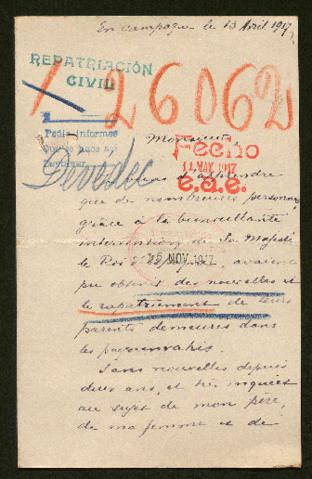 En campagne le 13 Avril 1917
REPATRIACIÓN
CIVIL
1 26062
Pedir informes
Monsieur
Fecho
11 MAY. 1917
e.a.e.
d'apprendre
que de nombreuses personnes
grâce à la bienveillante
intervention de Sa Majesté
le Roi d'Espagne, avaient
NOV. 1917
pu obtenir des nouvelles et
le rapatriement de leurs
parents demeurés dans
les pays envahis.
Sans nouvelles depuis
deux ans, et très inquiet
au sujet de mon père,
de ma femme et de